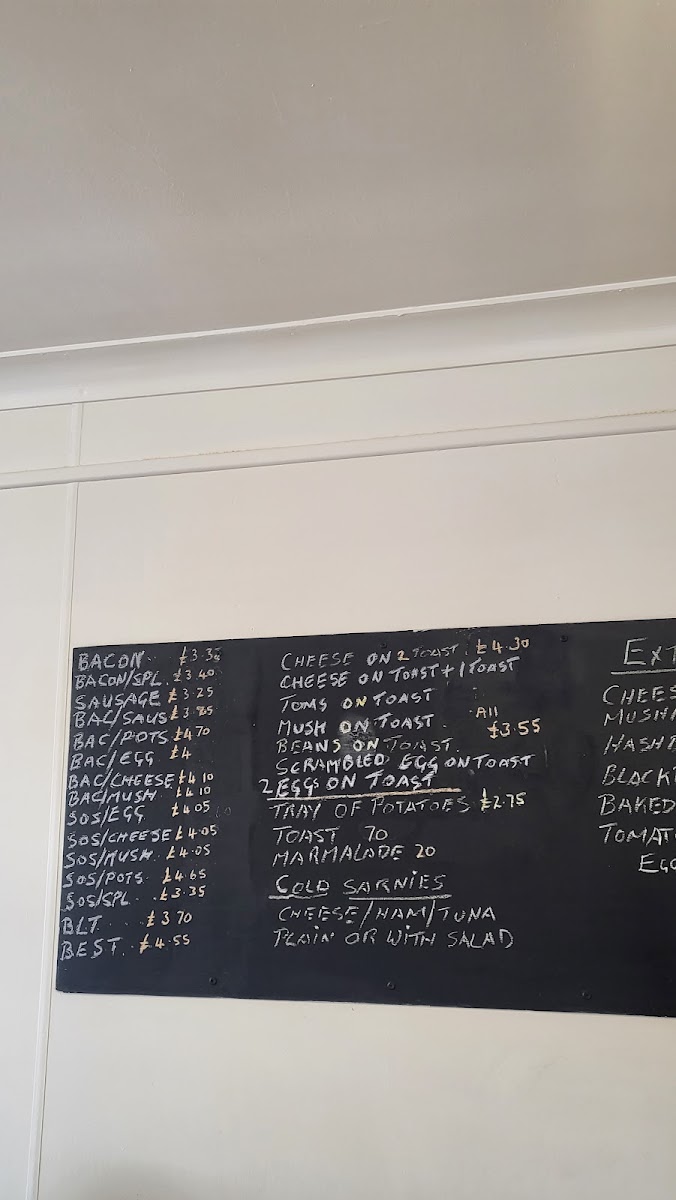 BACON £3.35
BACON/SPL. £3.40
SAUSAGE £3.25
BAC/SAUS £3.85
BAC/POTS £4.70
BAC/EGG £4
BAC/CHEESE £4.10
BAC/MUSH £4.10
SOS/EGG £4.05
SOS/CHEESE £4.05
SOS/MUSH. £4.05
SOS/POTS £4.65
SOS/SPL. £3.35
BLT.... £3.70
BEST.. £4.55
CHEESE ON 2 TOAST. £4.30
CHEESE ON TOAST + 1 TOAST
TOMS ON TOAST
MUSH ON TOAST.
All £3.55
BEANS ON TOAST.
SCRAMBLED EGG ON TOAST
2 EGGS ON TOAST
TRAY OF POTATOES £2.75
TOAST 70
MARMALADE 20
COLD SARNIES
CHEESE/HAM/TUNA
PLAIN OR WITH SALAD
EXT
CHEES
MUSH
HASH
BLACK
BAKED
TOMAT
EGG